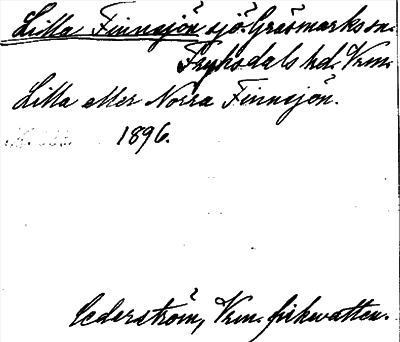 Lilla Finnsjön sjö. Gräsmarks sn.
Fryksdals hd. Vrm.
Lilla eller Norra Finnsjön.
1896.
Cederström, Vrm. fiskvatten.